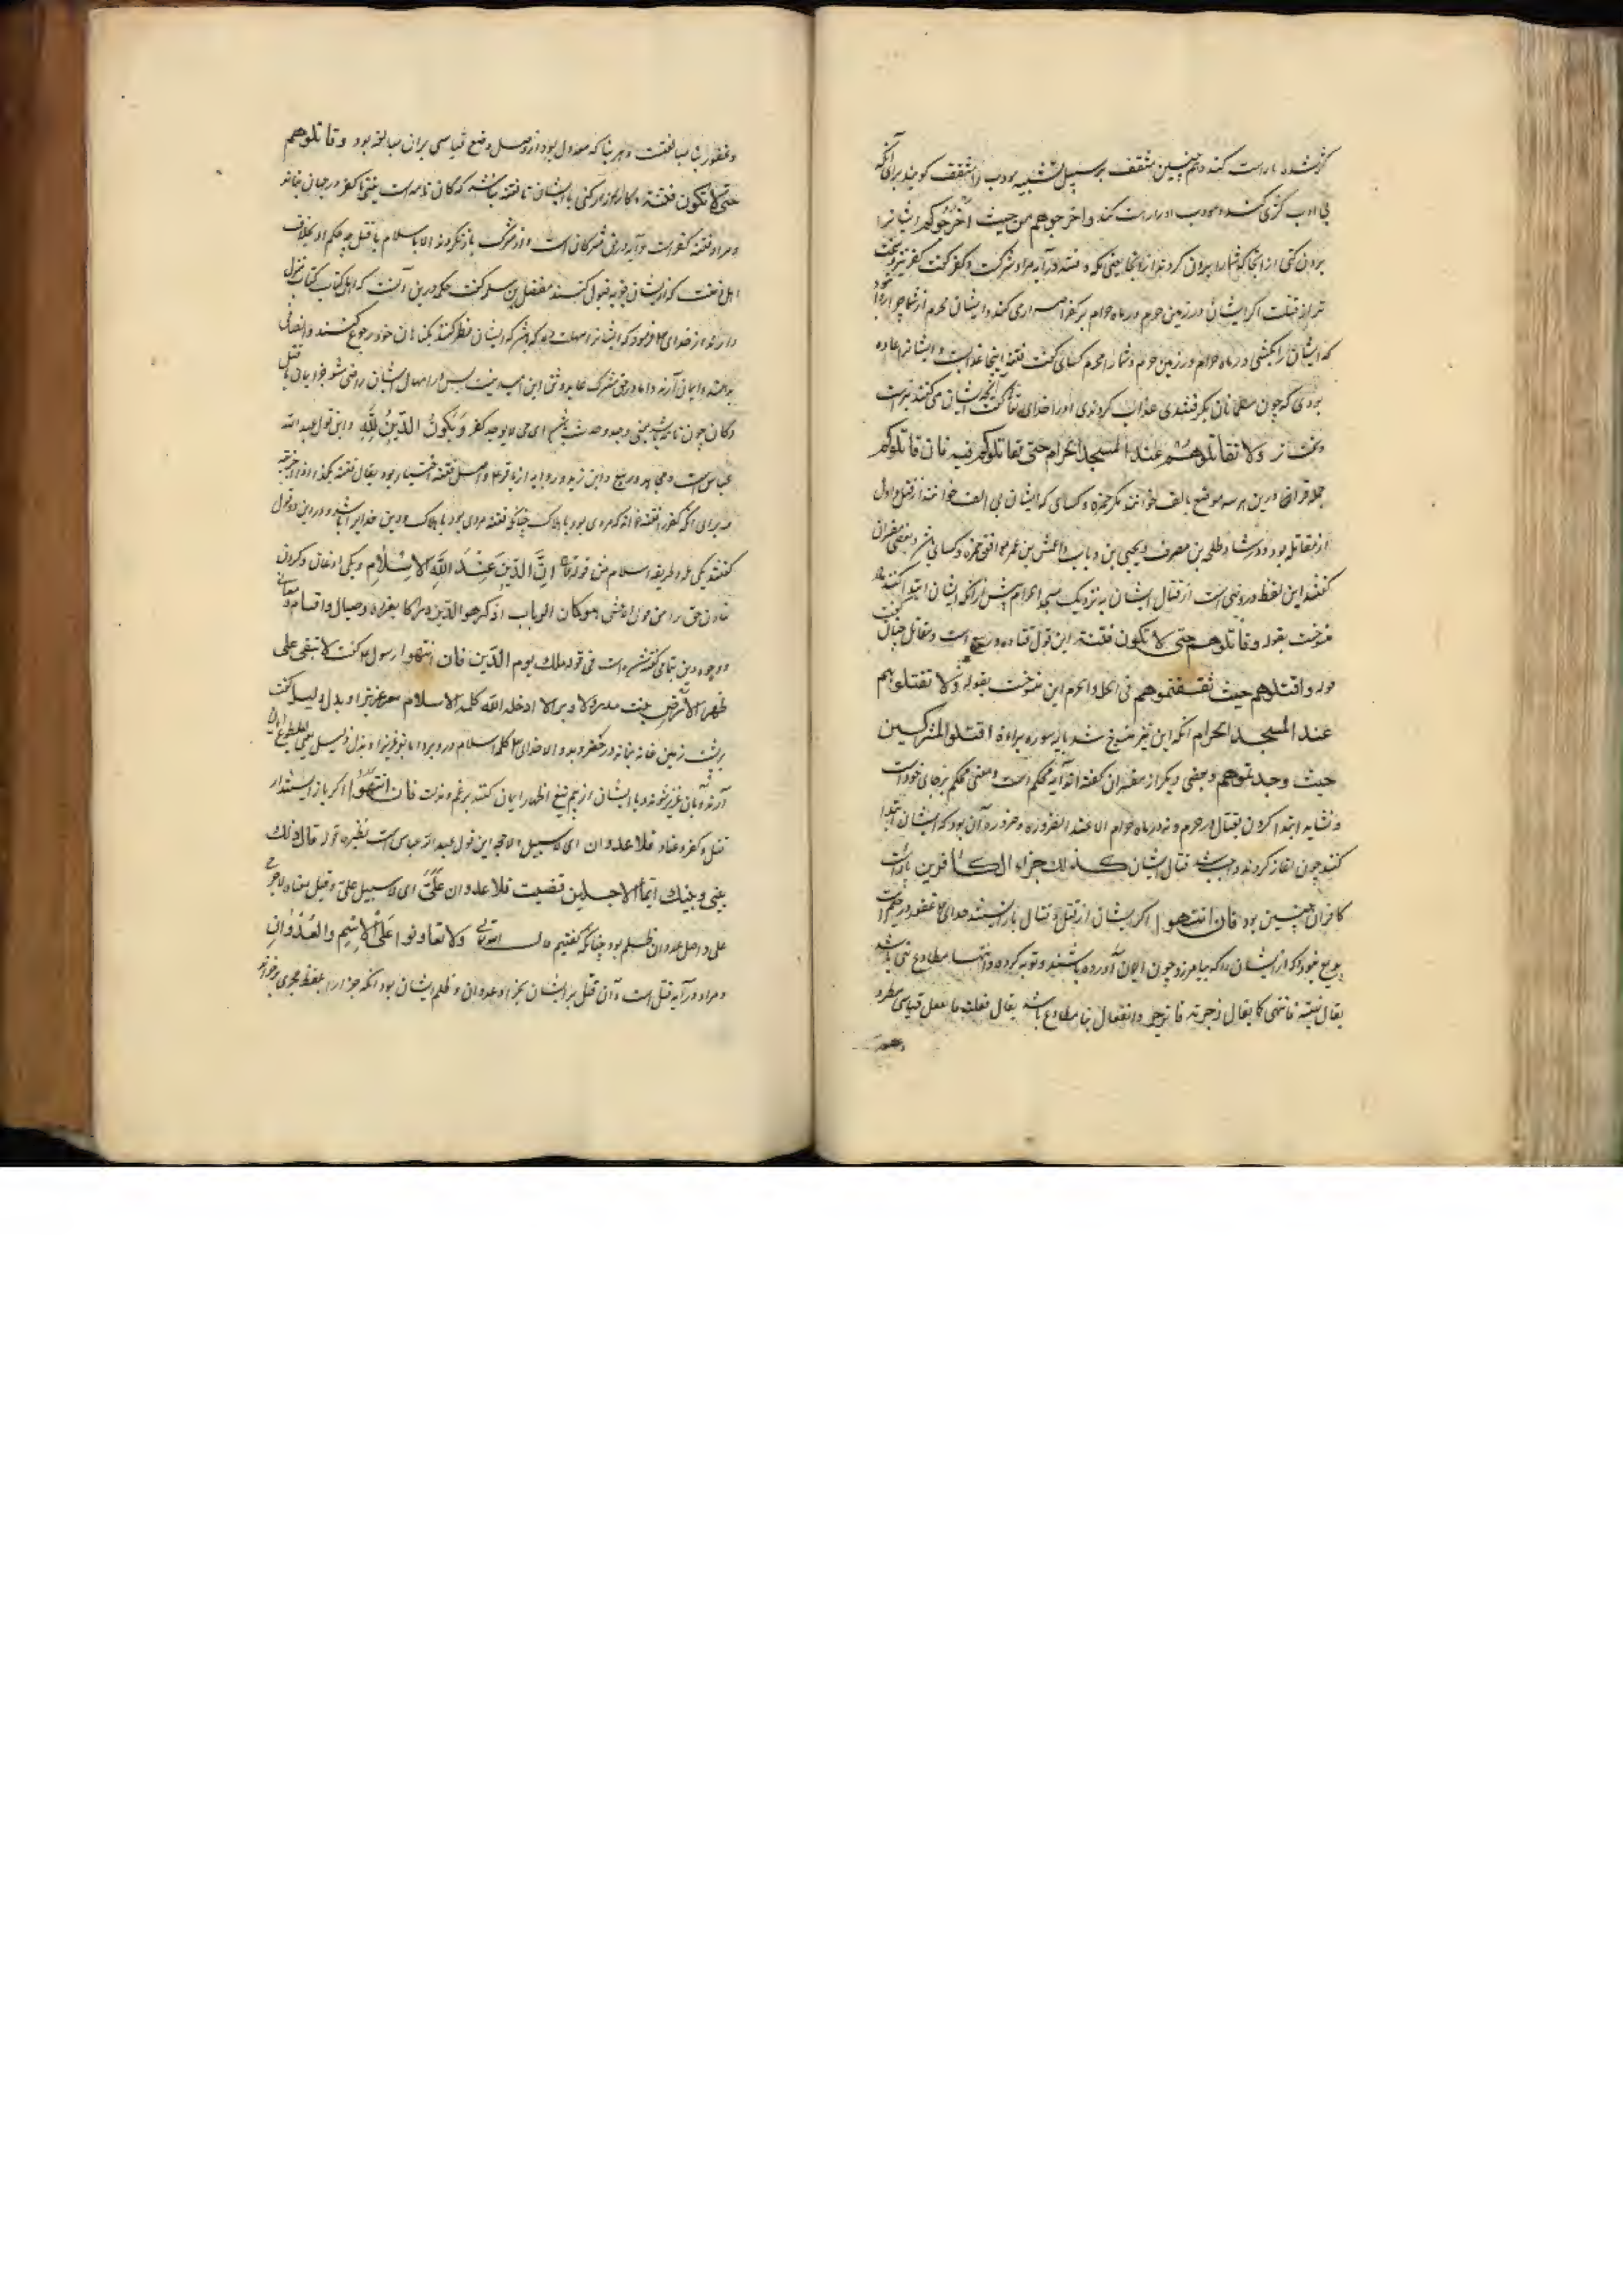 کژ شده را راست کند و هم چنین مثقف بر سبیل تشبیه مودب را مثقف کویند برای آنکه
بی ادب کژی کند و مودب او را راست کند واخرجوهم من حیث اخرجوکم ایشانرا
برون کنی از انجا که شما را بیرون کردند از انجا یعنی مکه و فتنه در آیه مراد شرکت و کفر گفت کفر
تر از قتلت اکر ایشان در زمین حرم و در ماه حرام بر کفر اصرار می کنند و ایشان محرم از شما چرا روا
که ایشان را بکشی در ماه حرام و در زمین حرم و شما را محرم کسای گفت فتنه اینجا عذابست و ایشانرا عاده
بودی که چون مسلمانان بگرفتندی عذاب کردندی او را خدای تعا گفت آنچه ایشان می کنند بترست
ولا تقاتلوهم عند المسجد الحرام حتی یقاتلوکم فیه فان قاتلوکم
جمله قران درین هر سه موضع بالف خوانند مکر حمزه و کسای که ایشان بی الف خوانند از قتل و اول
از مقاتله بود و در شاد طلحه بن مصرف و یحیی بن وثاب و اعمش بن عمر موافق حمزه و کسای اند و بعضی مفسران
گفتند این لفظ در ونهی است از قتال ایشان به نزدیک مسجد الحرام پیش از انکه ایشان ابتدا کنند
منسوخست بقوله وقاتلوهم حتی لا تکون فتنة این قول قتاده و ربیع است و مقاتل حیان گفت
قوله واقتلوهم حیث ثقفتموهم فی الحل والحرم این منسوخست بقوله ولا تقتلوهم
عند المسجد الحرام انکه این نیز منسوخ شد بآیه سوره براءة اقتلوا المشرکین
حیث وجدتموهم و بعضی دیکر از مفسران گفته اند آیه محکم است و معنی محکم برجای خود است
و نشاید ابتدا کردن بقتال در حرم و نه در ماه حرام الا عند الضروره و ضروره آن بود که ایشان ابتدا
کنند چون آغاز کردند واجب شد قتال ایشان کذلک جزاء الکافرین پاداشت
کافران چنین بود فان انتهوا اکر ایشان از قتل و قتال باز ایستند خدای تعا غفور و رحیم است
بدیع نبود که از ایشان را که بیامرزد چون ایمان آورده باشند و توبه کرده و انتها مطاوع نهی باشد
یقال نهیته فانتهی کما یقال زجرته فانزجر و انفعال بنا مطاوع باشد یقال فعلته فانفعل قیاسی مطرد
و غفور بنا مبالغتست و هر بنا که معدول بود از اصل وضع قیاسی بران مبالغه بود وقاتلوهم
حتی لا تکون فتنة کارزار کنی با ایشان تا فتنه نباشد که کان تامه است یعنی تا کفر در جهان نماند
و مراد فتنه کفر است و آیه در حق مشرکان است و از مشرک باز نکردند الا باسلام یا قتل چه حکم او بخلاف
اهل ذمتست که از ایشان جزیه قبول کنند مفضل بن سلمه گفت حکمه درین آنست که اهل کتاب کتاب منزل
دارند از خدای تعا فرمود که ایشانرا مهلت ده که باشد که ایشان نظر کنند بکتابهای خود رجوع کنند و انصاف
بدهند و ایمان آرند و اما در حق مشرک عابد وثن این امید نیست پس در امهال ایشان راضی نشود جز بایمان یا قتل
و کان چون تامه باشد بمعنی وجد و حدث باشد ای حتی لا یوجد کفر ویکون الدین لله و این قول عبد الله
عباس است و مجاهد و ربیع و ابن زید و روایه از باقر و اصل فتنه اختبار بود یقال فتنه بکذا اذا اختبره
و برای آنکه کفر را فتنه خواند که مودی بود با هلاک چنانکه فتنه مودی بود با هلاک و دین خدایرا باشد و در این دو قول
گفتند یکی مله و طریقه اسلام من قوله تعا ان الدین عند الله الاسلام و یکی اذعان و کردن
نهادن حق را من قول الاعشی هو دان الرباب اذ کرهوا الدین دراکا بغزوة وصیال و اقسام و معانی
و وجوه دین بتمامی گفته شده است فی قوله ملک یوم الدین فان انتهوا رسول گفت لا تبقی علی
ظهر الارض بیت مدر ولا وبر الا ادخله الله کلمه الاسلام بعز عزیز او بذل ذلیل گفت
بر پشت زمین خانه نماند در حضر و بدو الا خدای تعا کلمه اسلام درو برد اما بعز عزیز او بذل ذلیل
آرند و بآن عزیز شوند و یا ایشان از بیم تیغ اظهار ایمان کنند برغم و مذلت فان انتهوا اکر باز ایستند از
قتل و کفر و عناد فلا عدوان ای لا سبیل و لا حجه این قول عبد الله عباس است نظیره قوله قال ذلک
بینی وبینک ایما الاجلین قضیت فلا عدوان علی ای لا سبیل علی و قیل معناه لا حرج
علی و اصل عدوان ظلم بود چنانکه گفتیم قال الله تعالی ولا تعاونوا علی الاثم والعدوان
و مراد در آیه قتل است و آن قتل بر ایشان بجزاء عدوان و ظلم ایشان بود انکه جزا را بلفظ مجزی برخواند